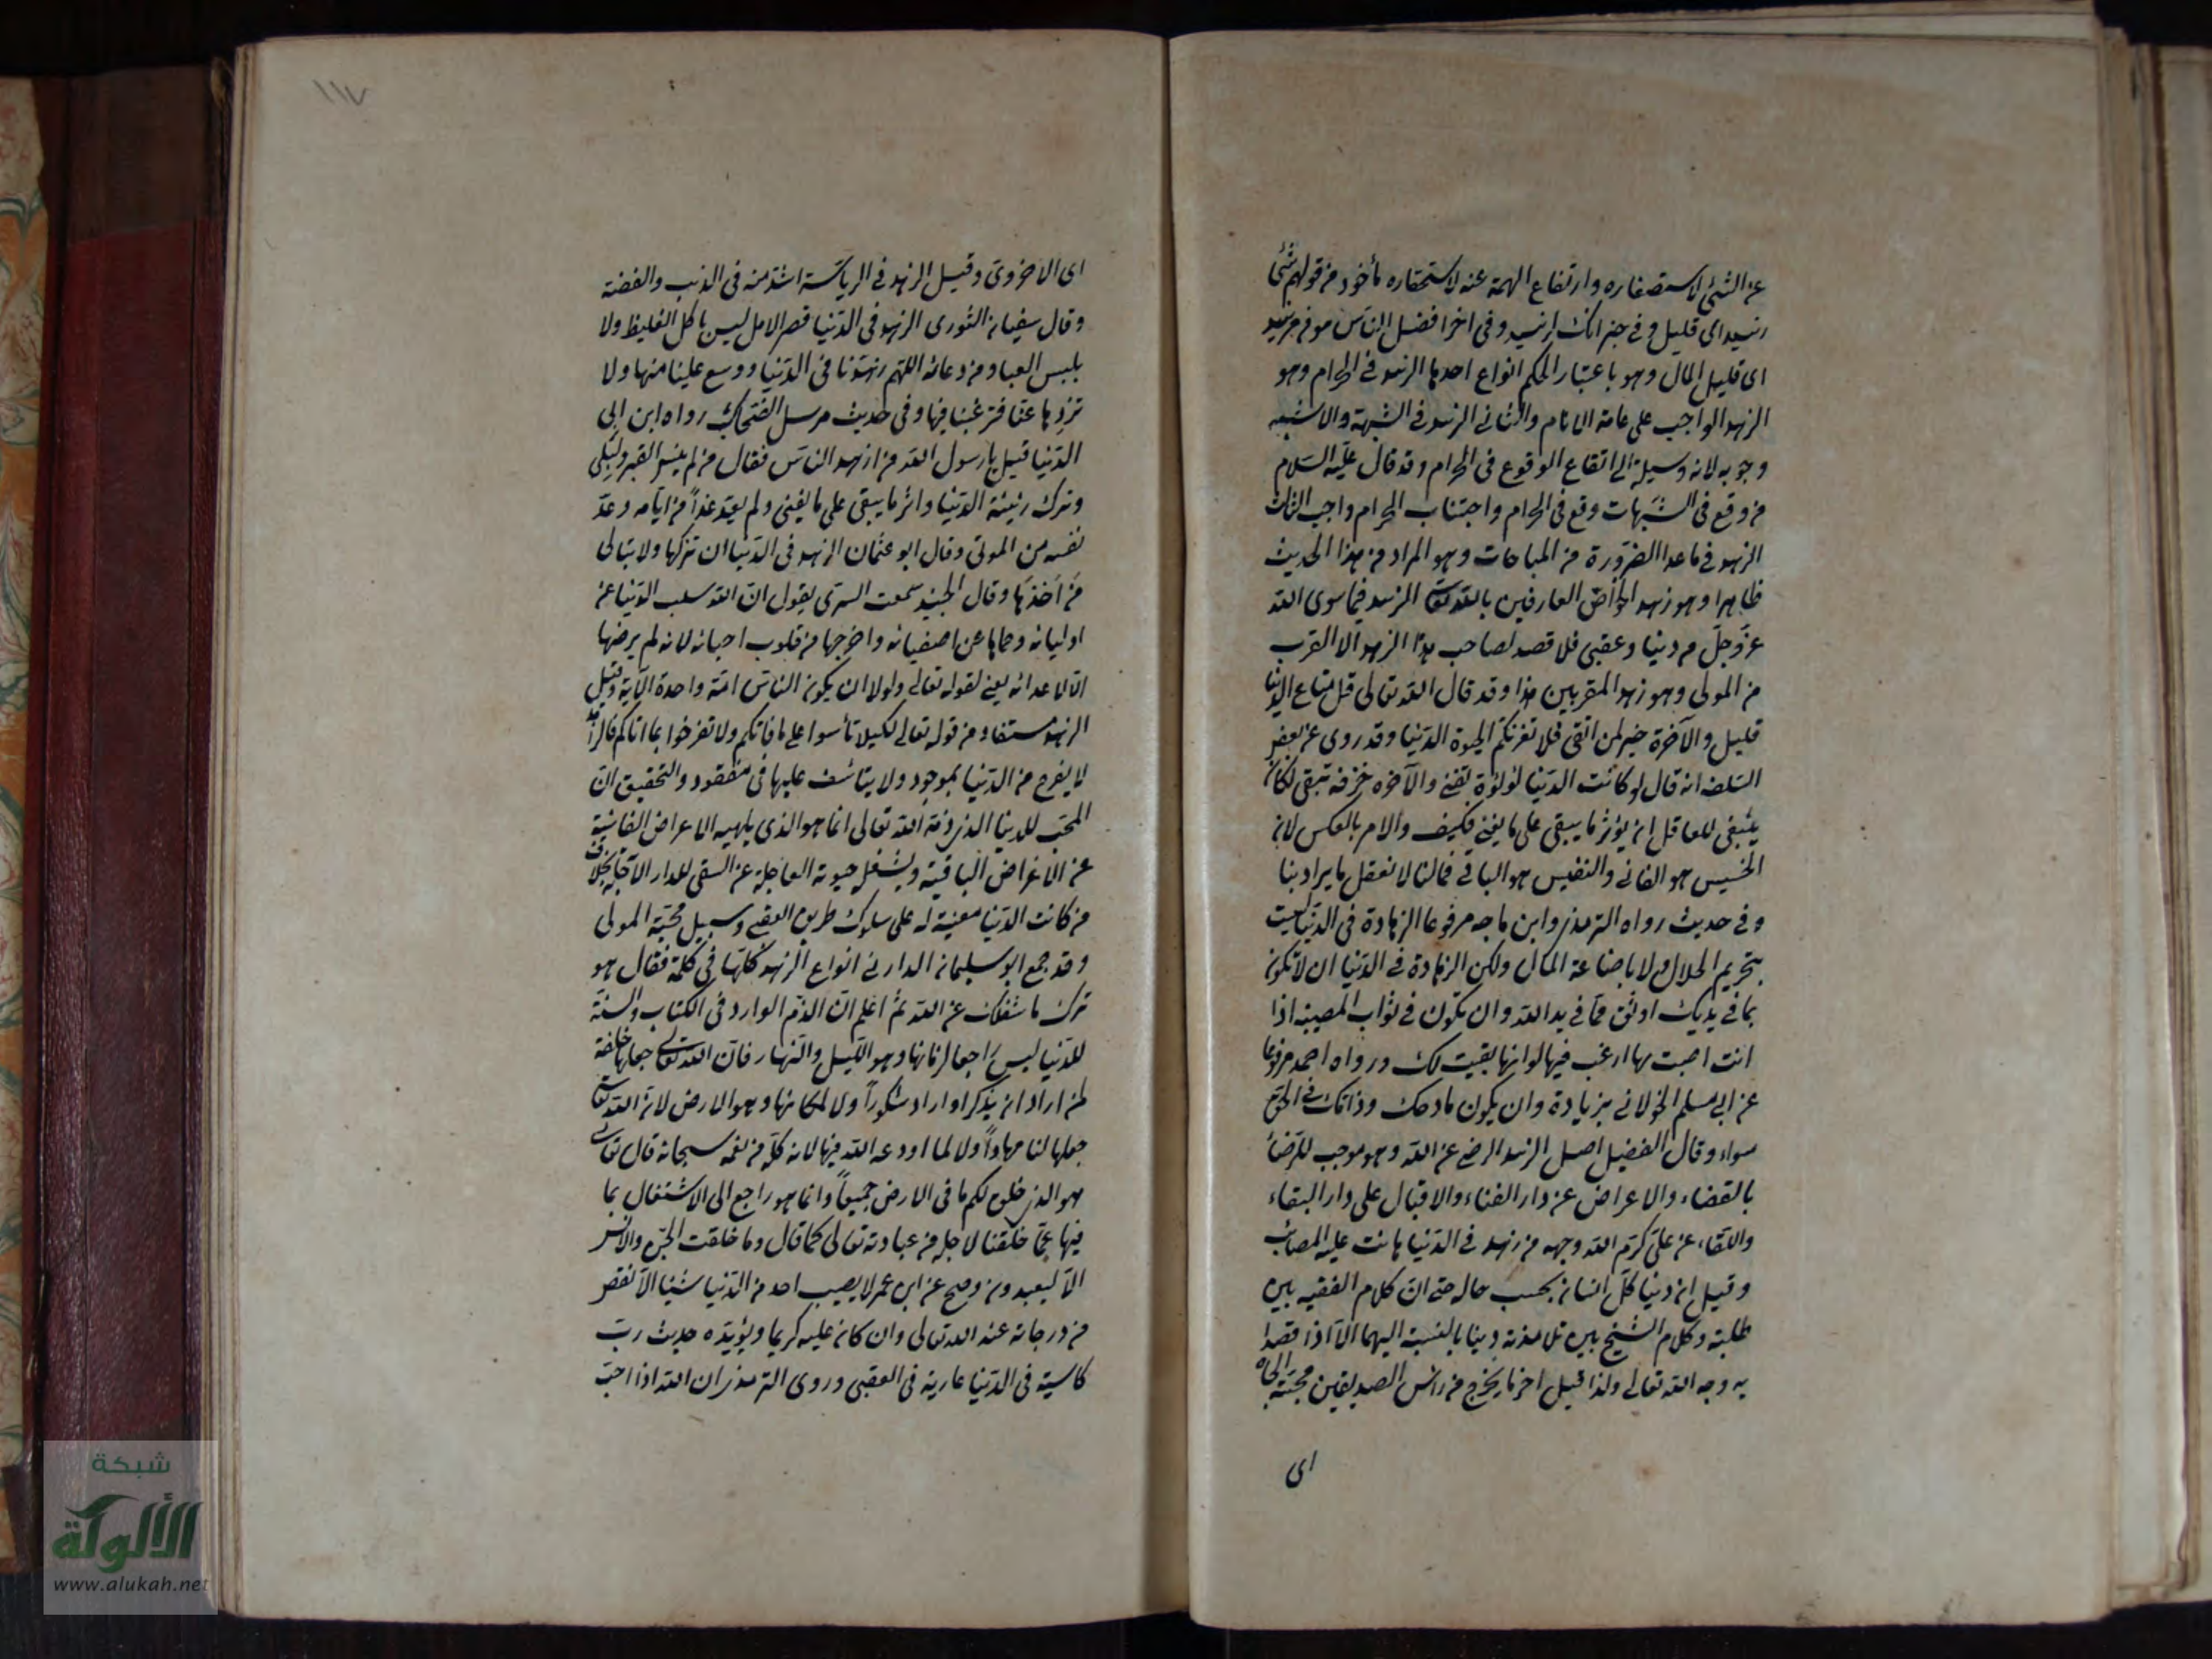 عن الشئ لاستصغاره وارتفاع الهمة عنه لاستحقاره مأخوذ من قولهم شئ
زهيد اى قليل وفى خبر انك لزهيد وفى اخر افضل الناس مومن مزهد
اى قليل المال وهو باعتبار الحكم انواع احدها الزهد فى الحرام وهو
الزهد الواجب على عامة الانام والثانى الزهد فى الشبهة والاشبه
وجوبه لانه وسيلة الى اتقاء الوقوع فى الحرام وقد قال عليه السلام
من وقع فى الشبهات وقع فى الحرام واجتناب الحرام واجب الثالث
الزهد فى ما عدا الضرورة من المباحات وهو المراد من هذا الحديث
ظاهرا وهو زهد الخواص العارفين بالله تعالى الزهد فيما سوى الله
عز وجل من دنيا وعقبى فلا قصد لصاحب هذا الزهد الا القرب
من المولى وهو زهد المقربين هذا وقد قال الله تعالى قل متاع الدنيا
قليل والآخرة خير لمن اتقى فلا تغرنكم الحيوة الدنيا وقد روى عن بعض
السلف انه قال لو كانت الدنيا لؤلؤة تفنى والآخرة خزفة تبقى لكان
ينبغى للعاقل ان يؤثر ما يبقى على ما يفنى فكيف والامر بالعكس لان
الخسيس هو الفانى والنفيس هو الباقى فما لنا لا نعقل ما يراد بنا
وفى حديث رواه الترمذى وابن ماجه مرفوعا الزهادة فى الدنيا ليست
بتحريم الحلال ولا باضاعة المال ولكن الزهادة فى الدنيا ان لا تكون
بما فى يديك اوثق مما فى يد الله وان تكون فى ثواب المصيبة اذا
انت اصبت بها ارغب فيها لو انها بقيت لك ورواه احمد مرفوعا
عن ابى مسلم الخولانى بزيادة وان يكون مادحك وذامك فى الحق
سواء وقال الفضيل اصل الزهد الرضى عن الله وهو موجب للرضاء
بالقضاء والاعراض عن دار الفناء والاقبال على دار البقاء
واللقاء عن على كرم الله وجهه من زهد فى الدنيا هانت عليه المصائب
وقيل ان دنيا كل انسان بحسب حاله حتى ان كلام الفقيه بين
طلبته وكلام الشيخ بين تلامذته دنيا بالنسبة اليهما الا اذا قصدا
به وجه الله تعالى ولذا قيل اخر ما يخرج من رأس الصديقين محبة الجاه
اى
١١٧
اى الاخروى وقيل الزهد فى الرياسة اشد منه فى الذهب والفضة
وقال سفيان الثورى الزهد فى الدنيا قصر الامل ليس باكل الغليظ ولا
بلبس العباء ومن دعائه اللهم زهدنا فى الدنيا ووسع علينا منها ولا
تزوها عنا فترغبنا فيها وفى حديث مرسل الضحاك رواه ابن ابى
الدنيا قيل يا رسول الله من ازهد الناس فقال من لم ينس القبر والبلى
وترك زينة الدنيا واثر ما يبقى على ما يفنى ولم يعد غداً من ايامه وعد
نفسه من الموتى وقال ابو عثمان الزهد فى الدنيا ان تتركها ولا تبالى
من اخذها وقال الجنيد سمعت السرى يقول ان الله سلب الدنيا عن
اوليائه وحماها عن اصفيائه واخرجها من قلوب احبائه لانه لم يرضها
الا لاعدائه يعنى لقوله تعالى ولولا ان يكون الناس امة واحدة الآية وقيل
الزهد مستفاد من قوله تعالى لكيلا تأسوا على ما فاتكم ولا تفرحوا بما اتاكم فالزاهد
لا يفرح من الدنيا بموجود ولا يتأسف عليها فى مفقود والتحقيق ان
المحب للدنيا الذى ذمه الله تعالى انما هو الذى يلهيه الاعراض الفانية
عن الاغراض الباقية ويشغله حيوته العاجلة عن السعى للدار الآجلة بخلاف
من كانت الدنيا معينة له على سلوك طريق العقبى وسبيل محبة المولى
وقد جمع ابو سليمان الدارانى انواع الزهد كلها فى كلمة فقال هو
ترك ما شغلك عن الله ثم اعلم ان الذم الوارد فى الكتاب والسنة
للدنيا ليس راجعا لزمانها وهو الليل والنهار فان الله تعالى جعلها خلفة
لمن اراد ان يذكر او اراد شكوراً ولا لمكانها وهو الارض لان الله تعالى
جعلها لنا مهاداً ولا لما اودعه الله فيها لانه كله من نعمه سبحانه قال تعالى
هو الذى خلق لكم ما فى الارض جميعاً وانما هو راجع الى الاشتغال بما
فيها عما خلقنا لاجله من عبادته تعالى كما قال وما خلقت الجن والانس
الا ليعبدون وصح عن ابن عمر لا يصيب احد من الدنيا شيئا الا نقص
من درجاته عند الله تعالى وان كان عليه كريما ويؤيده حديث رب
كاسية فى الدنيا عارية فى العقبى وروى الترمذى ان الله اذا احب
شبكة
الألوكة
www.alukah.net